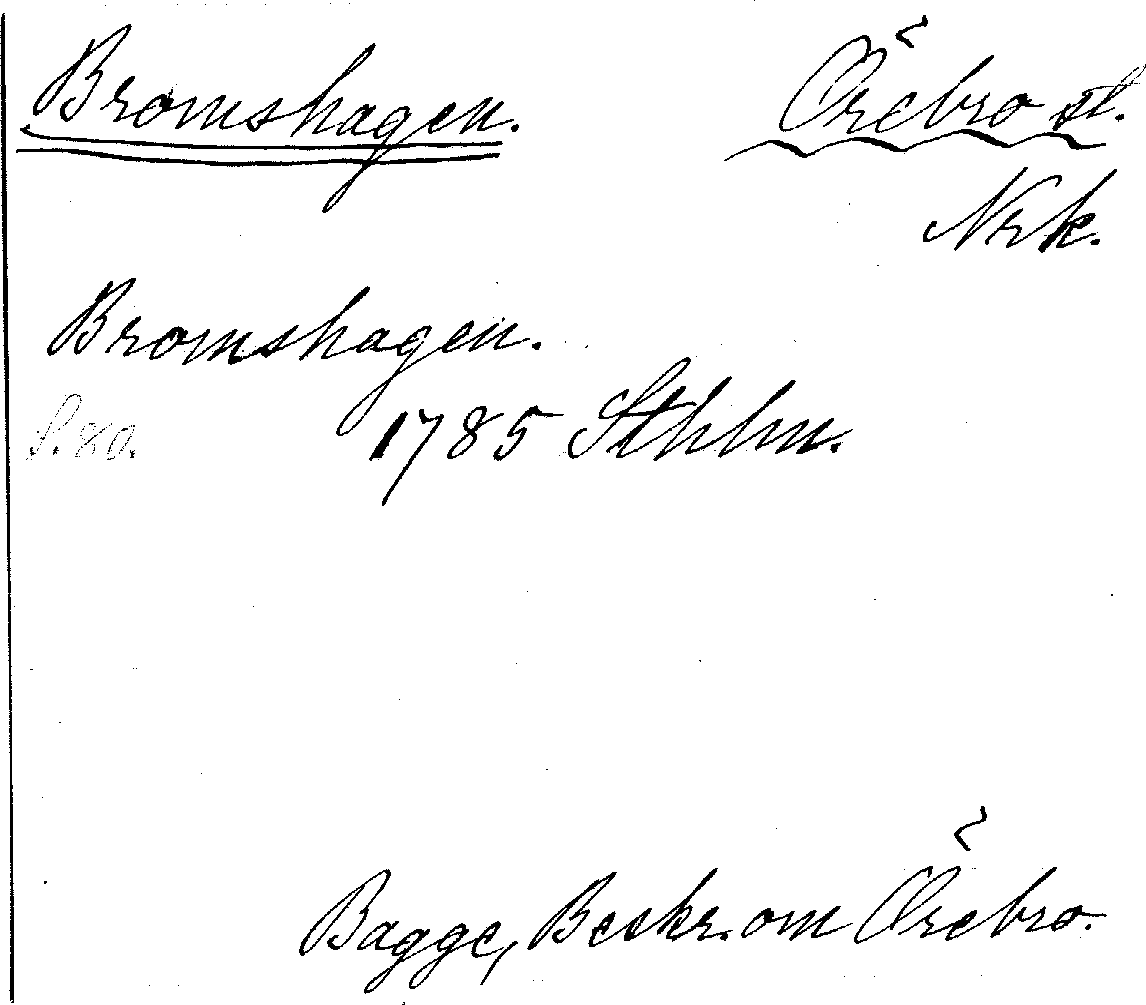 Bromshagen. Örebro st.
Nrk.
Bromshagen.
S. 80. 1785 Sthlm.
Bagge, Beskr. om Örebro.